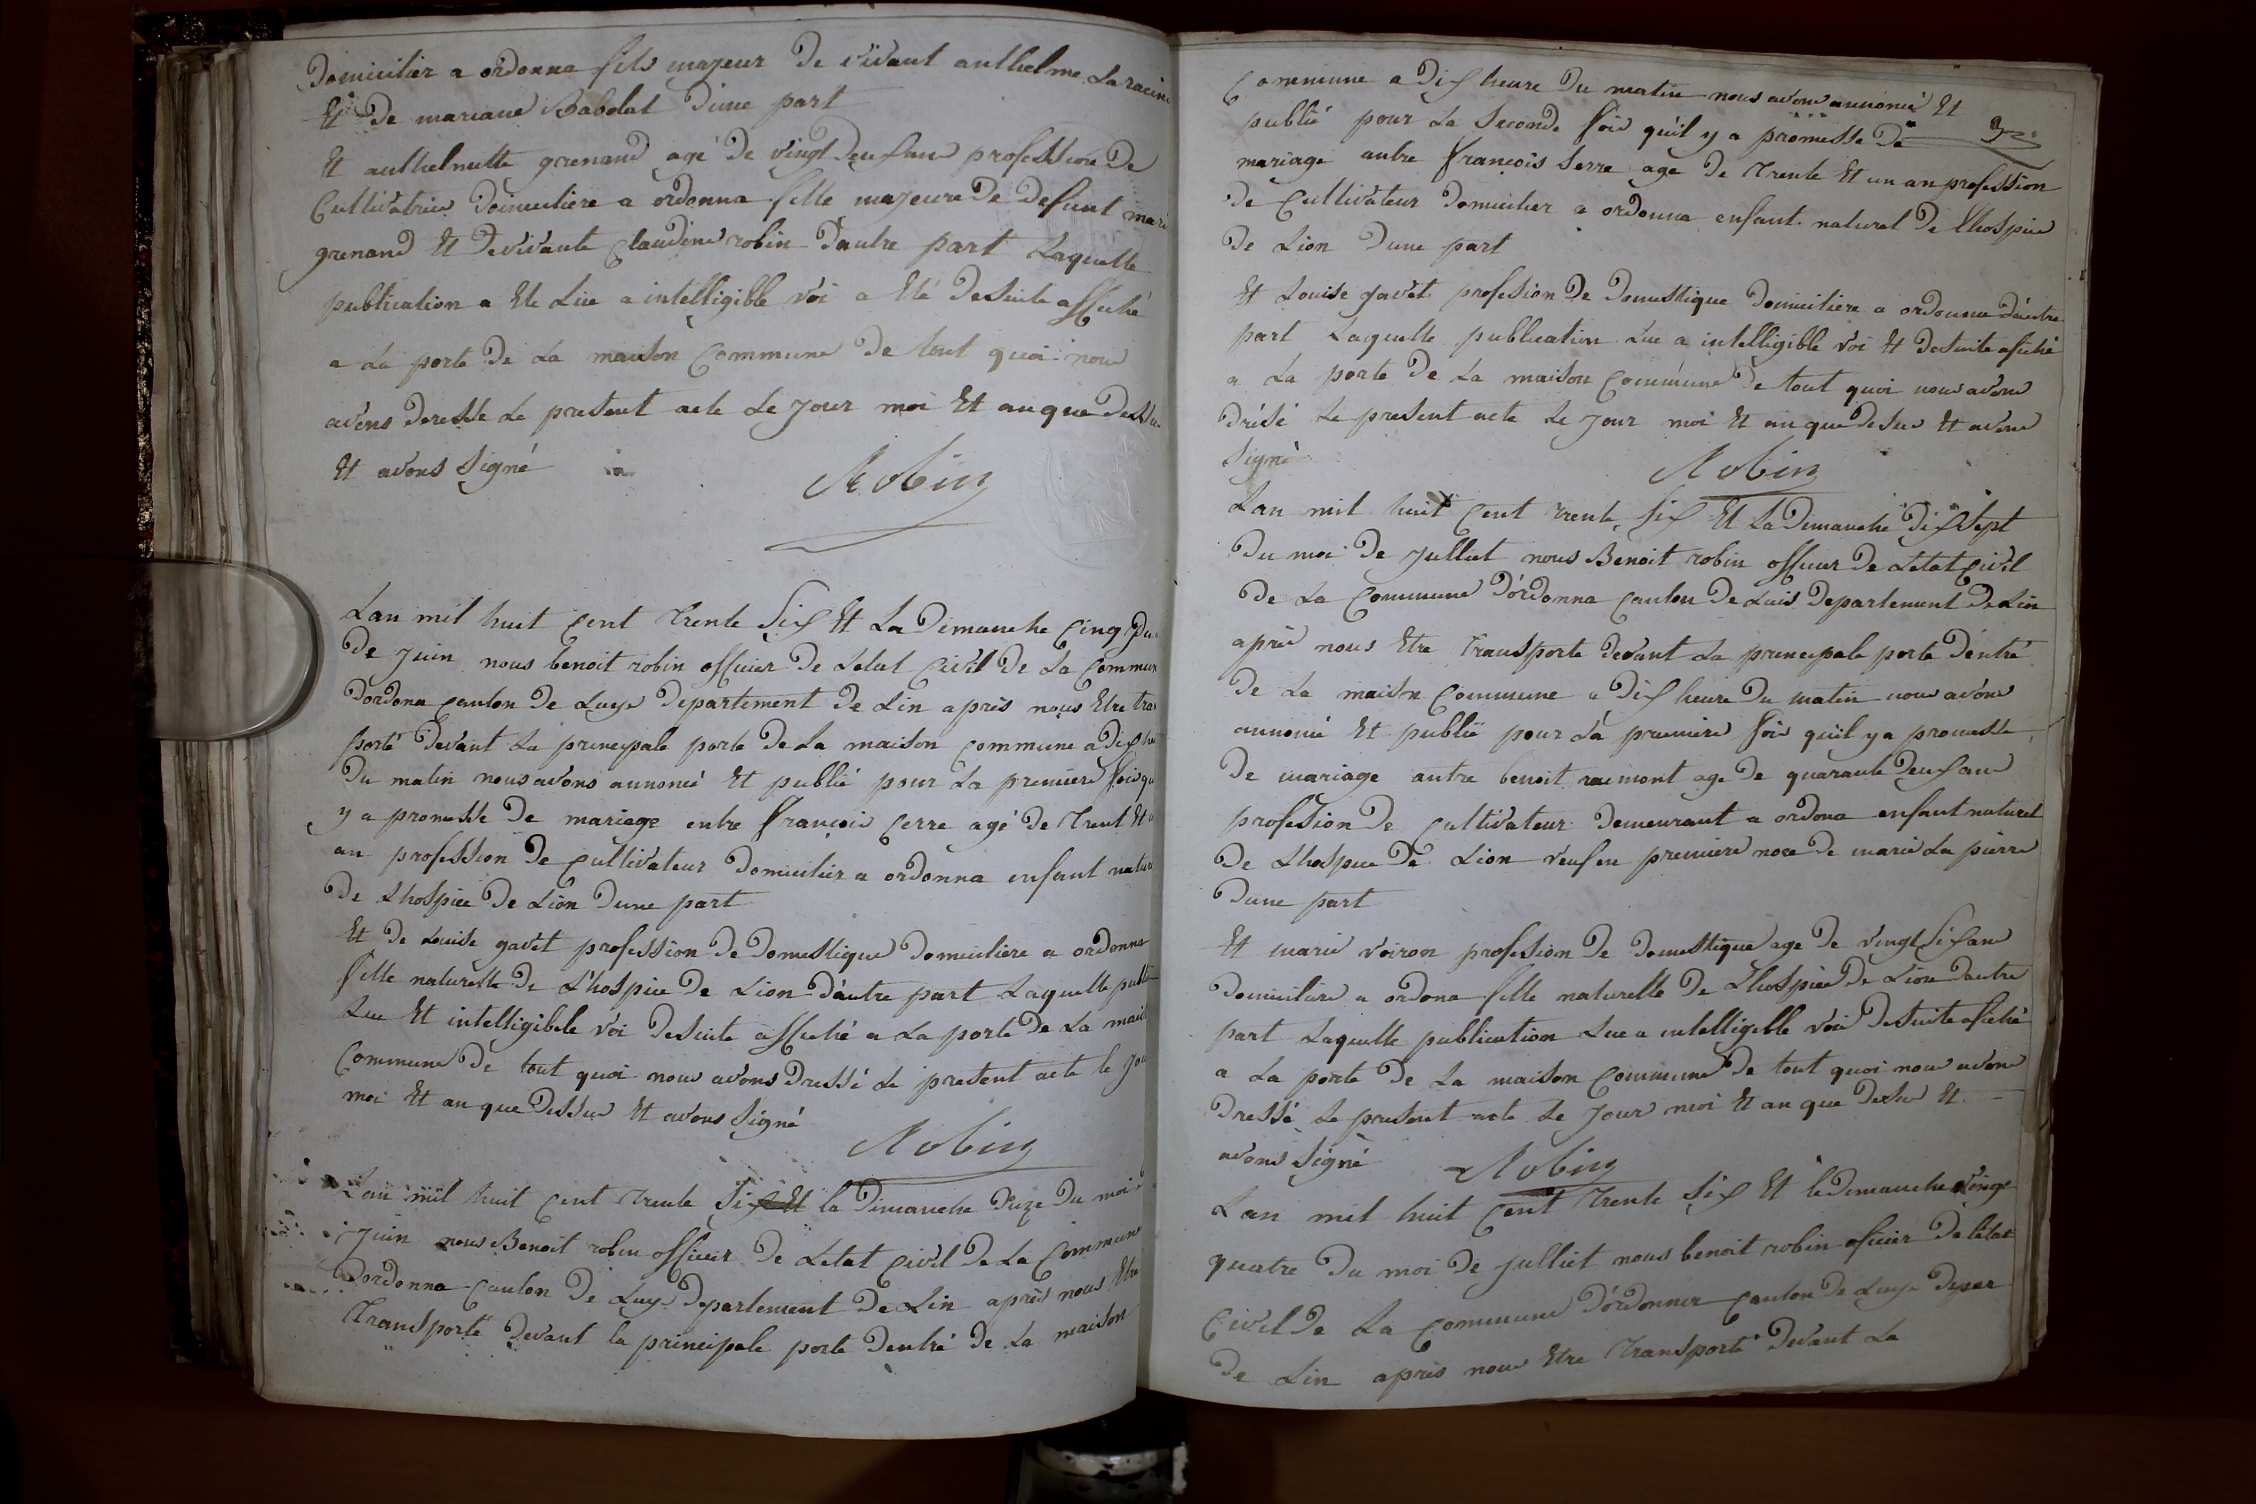 Domicilier a ordonna fils majeur De vivant anthelme Laracine
Et De mariane Babolat Dune part
Et anthelmette grenand agé De vingt Deux ans profession De
Cultivatrice Domiciliere a ordonna fille majeure De Defunt mari
grenand Et De vivante Claudine robin Dautre part Laquelle
publication a Ete Lue a intelligible voi a Eté De suite affiché
a La porte De La maison Commune De tout quoi nous
avons Dresse Le present acte Le jour moi Et an que Dessus
Et avons Signé
Robin
Lan mil huit Cent trente Six Et La Dimanche Cinq Du
De juin nous benoit robin officier De Letat Civil De La Commune
Dordona Canton De Luys Departement De Lin après nous Etre trans
porté Devant La principale porte De La maison Commune a Dix h
Du matin nous avons annoncé Et publié pour La premiere fois qu
y a promesse De mariage entre françois Cerre agé De trent Et
an profession De Cultivateur Domicilier a ordonna enfant nature
De Lhospice De Lion Dune part
Et De Louise gavet profession De Domestique Domiciliere a ordonna
fille naturelle De Lhospice De Lion Dautre part Laquelle publi
Lue Et intelligibele voi De suite affiché a La porte De La mais
Commune De tout quoi nous avons Dressé Le present acte le jou
moi Et an que Dessus Et avons Signé
Robin
Lan mil huit Cent trente Six Et la Dimanche Duze Du moi
juin nous Benoit robin officier De Letat Civil De La Commune
Dordonna Canton De Luys Departement De Lin après nous Etre
transporté Devant la principale porte Dentré De La maison
Commune a Dix heure Du matin nous avons annoncé Et
publié pour La Seconde fois quil y a promesse De
mariage antre françois Serre age De trente Et un an profession
De Cultivateur Domicilier a ordonna enfant naturel De Lhospice
De Lion Dune part
Et Louise gavet profesion De Domestique Domiciliere a ordonna Dautre
part Laquelle publication Lue a intelligible voi Et De suite afiché
a La porte De La maison Commune De tout quoi nous avons
Drésé Le present acte Le jour moi Et an que Desus Et avons
Signé
Robin
Lan mil huit Cent trente Six Et La Dimanche Dix Sept
Du moi De jullet nous Benoit robin officier De Letat Civil
De La Commune Dordonna Canton De Luis Departement De Lin
après nous Etre transporte Devant La principale porte Dentré
De La maison Commune a Dix heure Du matin nous avons
annoncé Et publié pour La premiere fois quil y a promesse
De mariage antre benoit raimont age De quarante Deux ans
profesion De Cultivateur Demeurant a ordona enfant naturel
De Lhospice De Lion veuf en premiere noce De marie La pierre
Dune part
Et marie voiron profesion De Domestique age De vingt Six ans
Domiciliere a ordona fille naturelle De Lhospice De Lion Dautre
part Laquelle publication Lue a intelligible voi De suite afiché
a La porte De La maison Commune De tout quoi nous avons
Dressé Le present acte Le jour moi Et an que Desus Et
avons Signé
Robin
Lan mil huit Cent trente Six Et le Dimanche vingt
quatre Du moi De julliet nous benoit robin oficier De létat
Civil De La Commune Dordonna Canton De Luys Depar
De Lin après nous Etre transporté Devant La